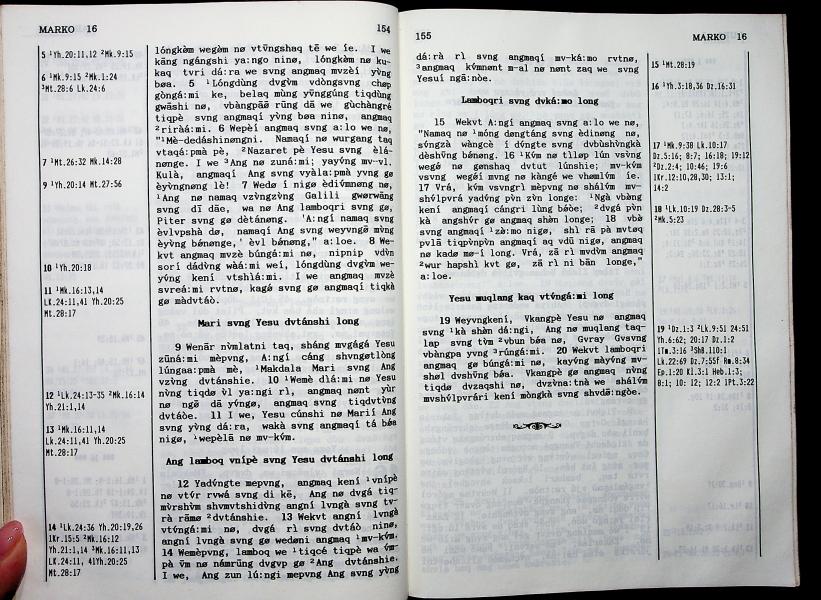 MARKO 16 154
5 ¹Yh.20:11,12 ²Mk.9:15
6 ¹Mk.9:15 ²Mk.1:24
³Mt.28:6 Lk.24:6
7 ¹Mt.26:32 Mk.14:28
9 ¹Yh.20:14 Mt.27:56
10 ¹Yh.20:18
11 ¹Mk.16:13,14
LK.24:11,41 Yh.20:25
Mt.28:17
12 ¹Lk.24:13-35 ²Mk.16:14
Yh.21:1,14
13 ¹Mk.16:11,14
Lk.24:11,41 Yh.20:25
Mt.28:17
14 ¹Lk.24:36 Yh.20:19,26
1Kr.15:5 ²Mk.16:12
Yh.21:1,14 ³Mk.16:11,13
LK.24:11, 41Yh.20:25
Mt.28:17
lóngkèm wegèm nø vtv̄ngshaq tē we íe. I we
kāng ngángshì ya:ngo ninø, lóngkèm nø ku-
kaq tvri dá:ra we svng angmaq mvzèí yv̀ng
bøa. 5 ¹Lóngdúng dvgv̀m vdòngsvng chøp
gòngá:mì ke, belaq mùng yv̄nggúng tiqdùng
gwāshì nø, vbàngpāō rūng dā we gùchàngré
tiqpè svng angmaqí yv̀ng bøa ninø, angmaq
²rìràá:mì. 6 Wepèí angmaq svng a:lo we nø,
"¹Mè-dedáshìnøngnì. Namaqí nø wurgang taq
vtaqá:pmà pè, ²Nazaret pè Yesu svng èlá-
nønge. I we ³Ang nø zuná:mì; yayv́ng mv-vl.
Kulà, angmaqí Ang svng vyàla:pmà yvng gø
èyv̀ngnøng lè! 7 Wedø í nigø èdívmnøng nø,
¹Ang nø namaq vzv̀ngzv̀ng Galili gwørwāng
svng dī dāe, wa nø Ang lamboqrì svng gø,
Piter svng gø dètánøng. 'A:ngí namaq svng
èvlvpshà dø, namaqí Ang svng weyv̀ngø̄ mv̀ng
èyv̀ng bénønge,' èvl bénøng," a:loe. 8 We-
kvt angmaq mvzè búngá:mì nø, nipnip vdv̀n
sorì dádv̀ng wàá:mì weí, lóngdúng dvgv̀m we-
yv́ng kení vtshlá:mì. I we angmaq mvzè
svreá:mì rvtnø, kagé svng gø angmaqí tiqkà
gø màdvtáò.
Marì svng Yesu dvtánshì lòng
9 Wenār nv̀mlatnì taq, sháng mvgágá Yesu
zūná:mì mèpvng, A:ngí cáng shvngøtlòng
lúngaa:pmà mè, ¹Makdala Mari svng Ang
vzv̀ng dvtánshìe. 10 ¹Wemè dlá:mì nø Yesu
nv̀ng tiqdø vl ya:ngì rì, angmaq nønt yùr
nø ngø̄ dā yv́ngø, angmaq svng tiqdvtv̀ng
dvtáòe. 11 I we, Yesu cúnshì nø Marìí Ang
svng yv̀ng dá:ra, wakà svng angmaqí tá béa
nigø, ¹wepèlā nø mv-kv́m.
Ang lamboq vnípè svng Yesu dvtánshì lòng
12 Yadv̀ngte mepvng, angmaq kení ¹vnípè
nø vtv́r rvwá svng dì kē, Ang nø dvgá tiq-
mv̀rshv̀m shvmvtshìdv̀ng angnì lvngà svng tv-
rà rāmø ²dvtánshìe. 13 Wekvt angnì lvngà
vtv́ngá:mì nø, dvgá rì svng dvtáò ninø,
angnì lvngà svng gø wedøní angmaq ¹mv-kv́m.
14 Wemèpvng, lamboq we ¹tiqcé tiqpè wa v́m-
pà v̀m nø námrūng dvgvp gø ²Ang dvtánshìe.
I we, Ang zun lú:ngì mepvng Ang svng yv̀ng
155 MARKO 16
dá:rà rì svng angmaqí mv-ká:mo rvtnø,
³angmaq kv́mnønt m-al nø nønt zaq we svng
Yesuí ngā:nòe.
Lamboqrì svng dvká:mo lòng
15 Wekvt A:ngí angmaq svng a:lo we nø,
"Namaq nø ¹móng døngtáng svng èdinøng nø,
sv́ngzà wàngcè í dv́ngte svng dvbùshv̀ngkà
dèshv̀ng bénøng. 16 ¹Kv́m nø tìløp lún vsv̀ng
wegø nø gønshaq dvtut lúnshìe; mv-kv́m
vsv̀ng wegéí mvng nø kàngé we vhømlv́m íe.
17 Vrá, kv́m vsvngrì mèpvng nø shálv́m mv-
shv́lpvrá yadv́ng pv̀n zv̀n lònge: ¹Ngà vbàng
kení angmaqí cángrì lùng béòe; ²dvgá pv̀n
kà angshv́r gø angmaq shèn lònge; 18 vbò
svng angmaqí ¹zà:mo nigø, shl rā pà mvtøq
pvlā tiqpv̀npv̀n angmaqí aq vdū nigø, angmaq
nø kadø mø-í long. Vrá, zā rì mvdv̀m angmaq
²wur hapshì kvt gø, zā rì nì bān lònge,"
a:loe.
Yesu muqlang kaq vtv́ngá:mì lòng
19 Weyv̀ngkení, Vkangpè Yesu nø angmaq
svng ¹kà shèn dá:ngì, Ang nø muqlang taq-
lap svng tv̀m ²vbun bóa nø, Gvray Gvsvng
vbàngpa yvng ³rúngá:mì. 20 Wekvt lamboqrì
angmaq gø búngá:mì nø, kayv́ng màyv́ng mv-
shøl dvshv̀ng béa. Vkangpè gø angmaq nv̀ng
tiqdø dvzaqshì nø, dvzv̀na:tnà we shálv́m
mvshv́lpvrárì kení mòngkà svng shvdø̄:ngòe.
15 ¹Mt.28:19
16 ¹Yh.3:18,36 Dz.16:31
17 ¹Mk.9:38 Lk.10:17
Dz.5:16; 8:7; 16:18; 19:12
²Dz.2:4; 10:46; 19:6
1Kr.12:10,28,30; 13:1;
14:2
18 ¹Lk.10:19 Dz.28:3-5
²Mk.5:23
19 ¹Dz.1:3 ²Lk.9:51 24:51
Yh.6:62; 20:17 Dz.1:2
1Tm.3:16 ³Sh8.110:1
Lk.22:69 Dz.7:55f Rm.8:34
Ep.1:20 Kl.3:1 Heb.1:3;
8:1; 10: 12; 12:2 1Pt.3:22